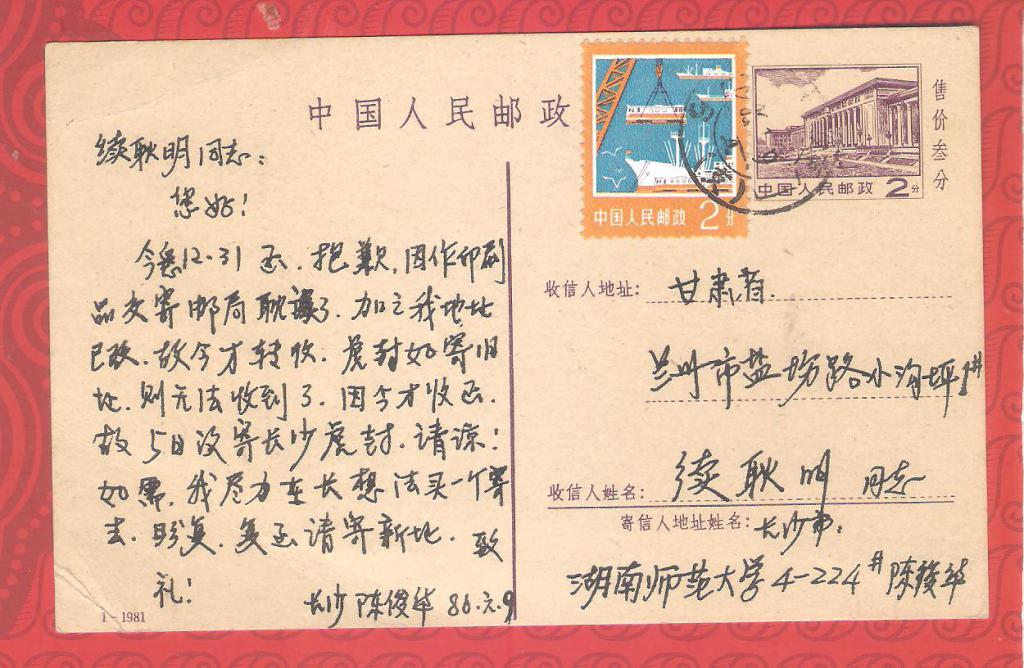 中国人民邮政
续耿明同志：
您好！
今悉12.31函.抱歉,因作印刷
品交寄邮局耽误了.加之我地址
已改.故今才转收.虎封如寄旧
址.则无法收到了.因今才收函.
故5日没寄长沙虎封.请谅！
如需.我尽力在长想法买一个寄
去.盼复.复函请寄新址.致
礼！
长沙陈俊华 86.元.9
1-1981
中国人民邮政 2分
中国人民邮政 2分
售价叁分
收信人地址：甘肃省.
兰州市盐场路小沟坪1#
收信人姓名：续耿明 同志
寄信人地址姓名：长沙市：
湖南师范大学4-224# 陈俊华